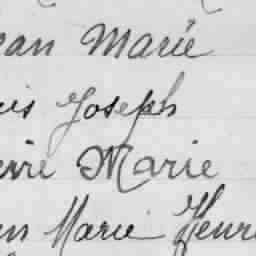 ean Marie
uis Joseph
erre Marie
en Marie Henri